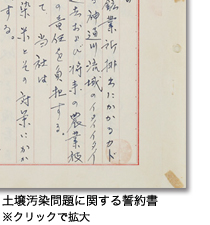 鉱業所排出にかかるカド
神通川流域のイタイイタイ
去および将来の農業被
の責任を負担する。
て、当社は
染米とその対策にかか
する。
土壌汚染問題に関する誓約書
※クリックで拡大